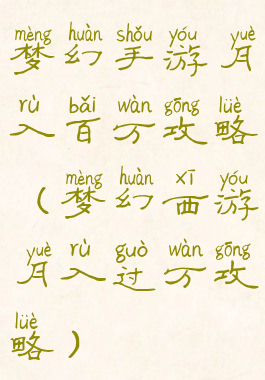 mèng huàn shǒu yóu yuè
梦幻手游月
rù bǎi wàn gōng lüè
入百万攻略
mèng huàn xī yóu
(梦幻西游
yuè rù guò wàn gōng
月入过万攻
lüè
略)